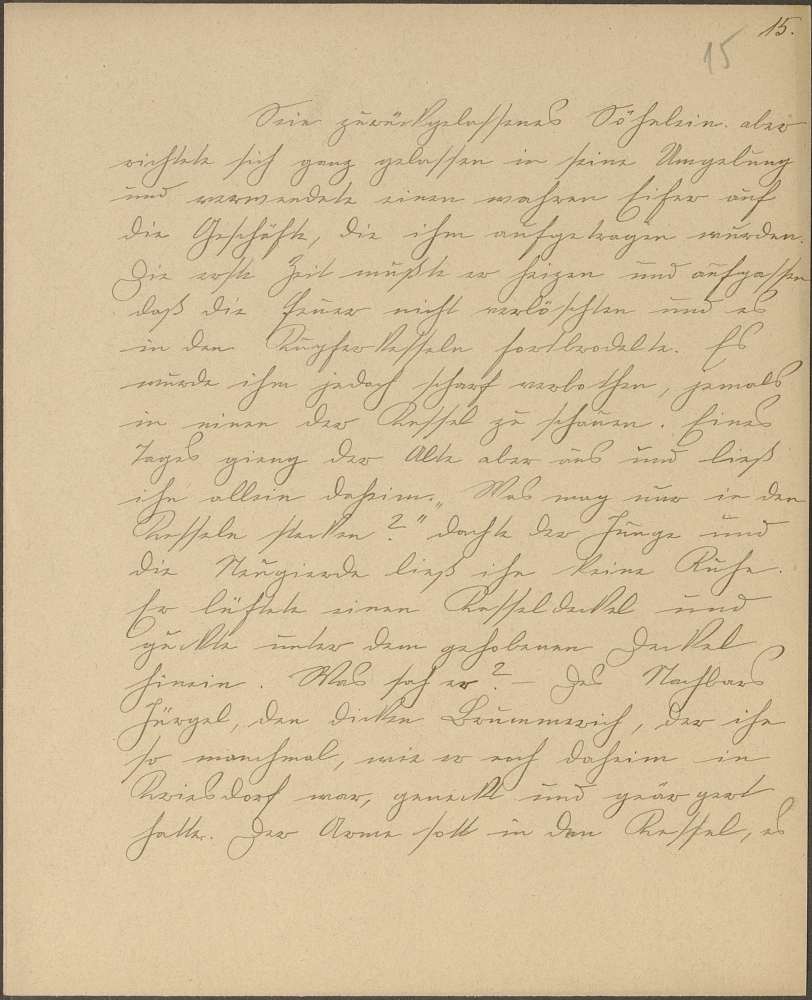 15.
15
Sein zurückgelassenes Söhnlein aber
richtete sich ganz gelassen in seine Umgebung
und verwendete einen wahren Eifer auf
die Geschäfte, die ihm aufgetragen wurden.
Die erste Zeit mußte er heizen und aufpassen
daß die Feuer nicht verlöschten und es
in den Kupferkesseln fortbrodelte. Es
wurde ihm jedoch scharf verbothen, jemals
in einen der Kessel zu schauen. Eines
Tages gieng der Alte aber aus und ließ
ihn allein daheim. „Was mag nur in den
Kesseln stecken?" dachte der Junge und
die Neugierde ließ ihn keine Ruhe.
Er lüftete einen Kesseldeckel und
guckte unter dem gehobenen Deckel
hinein. Was sah er? – Des Nachbars
Jürgel, den dicken Brummerich, der ihn
so manchmal, wie er noch daheim in
Kriesdorf war, geneckt und geärgert
hatte. Der Arme sott in den Kessel, es